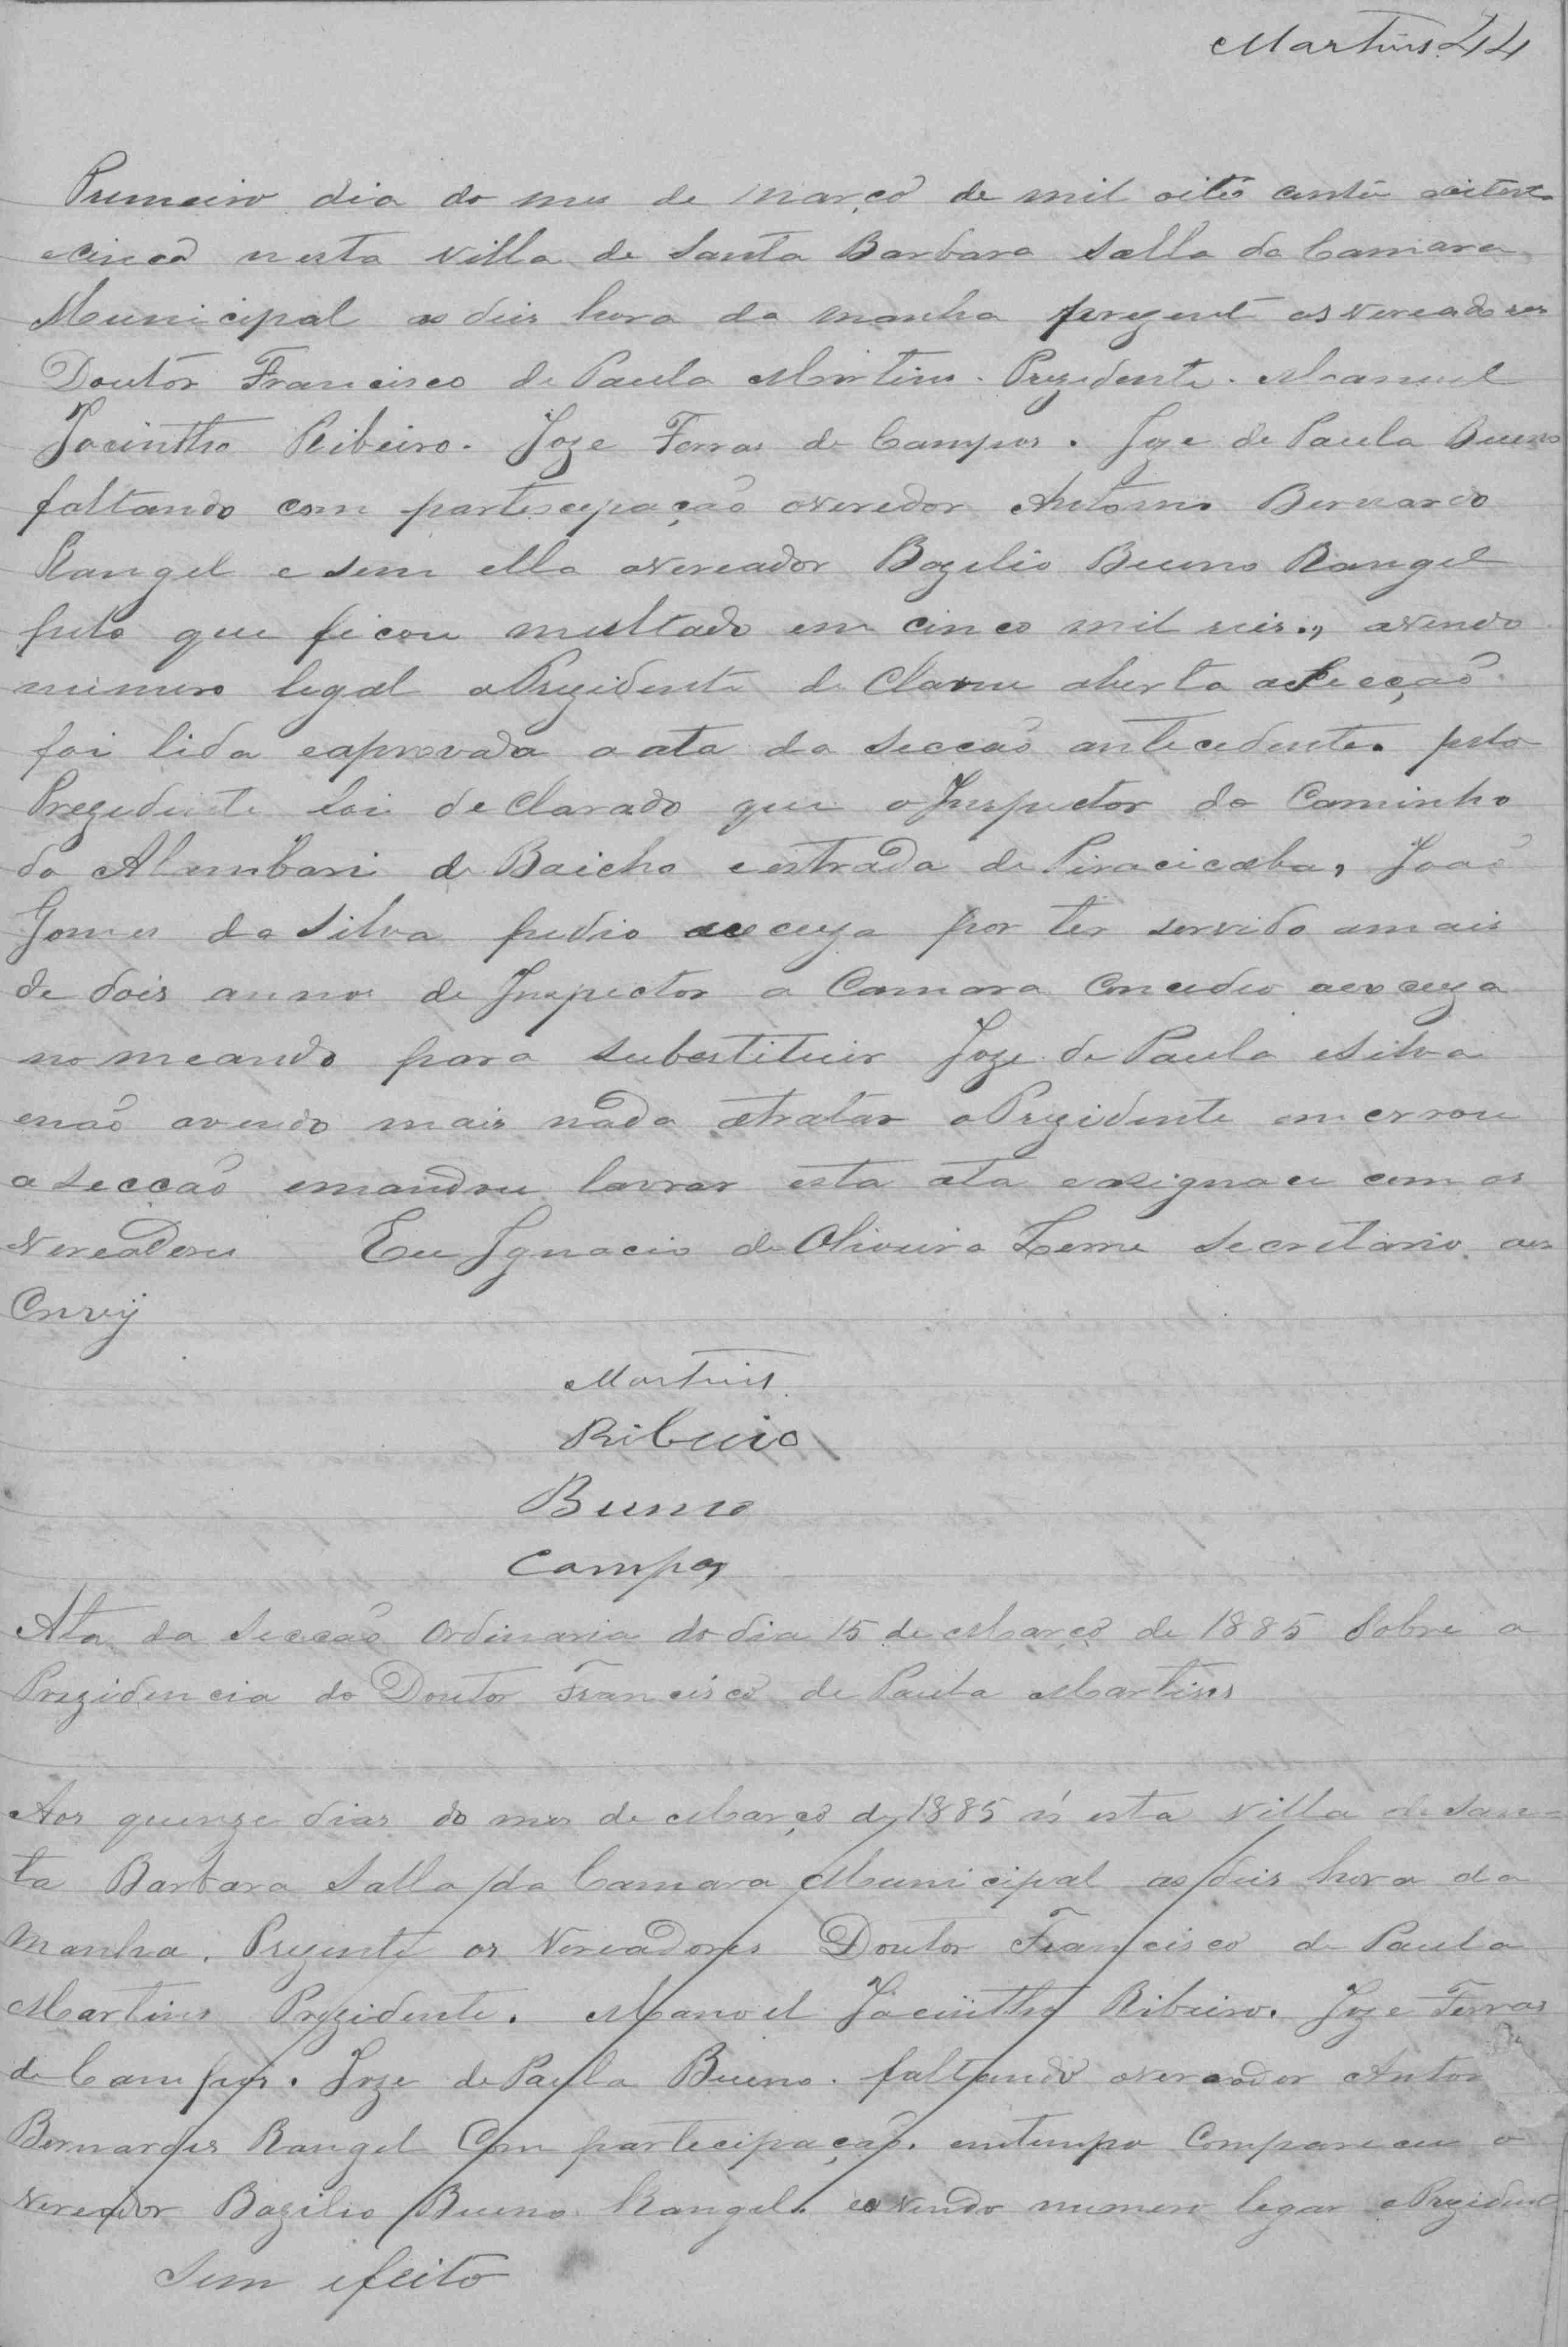 Martins 44
Primeiro dia do mes de março de mil oito centu oitent
ecinco nesta villa de Santa Barbara salla da Camara
Municipal as deis hora da manha prezent os vereadores
Doutor Francisco de Paula Martins. Prezidente. Manuel
Jacintho Ribeiro. Joze Ferras de Campos. Joze de Paula Bueno
faltando com partescipação overedor Antonio Bernardo
Rangel e sem ella overeador Bazilio Bueno Rangel
pelo que ficou multado em cinco mil reis., avendo
numero legal oPrezidente de Clarou aberta aSecção
foi lida eaprovada a ata da secção antecedente. pelo
Prezidente foi de Clarado que o Inspector do Caminho
do Alambari de Baicho eestrada de Piracicaba, João
Gomes da Silva pedio escuza por ter servido amais
de dois annos de Inspector a Camara Concedeo aescuza
nomeando para substituir Joze de Paula eSilva
enão avendo mais nada atratar oPrezidente emcerrou
a secção emandou lavrar esta ata easignou com os
vereadores Eu Ignacio de Oliveira Leme secretario, aes
Crevÿ
Martins
Ribeiro
Bueno
Campos
Ata da Secção Ordinaria do dia 15 de Março de 1885 Sobre a
Prezidencia do Doutor Francisco de Paula Martins
Aos quenze dias do mes de Março de 1885 n'esta villa de San=
ta Barbara Salla da Camara Municipal as deis hora da
manha. Prezente os Vereadores Doutor Francisco de Paula
Martins Prezidente. Manoel Jacintho Ribeiro. Joze Ferras
de Campos. Joze de Paula Bueno. faltando overeador Anton
Bernardes Rangel Com partecipação. emtempo Compareceu o
Vereador Bazilio Bueno Rangel. eavendo numero legar oPrezident
Sem efeito